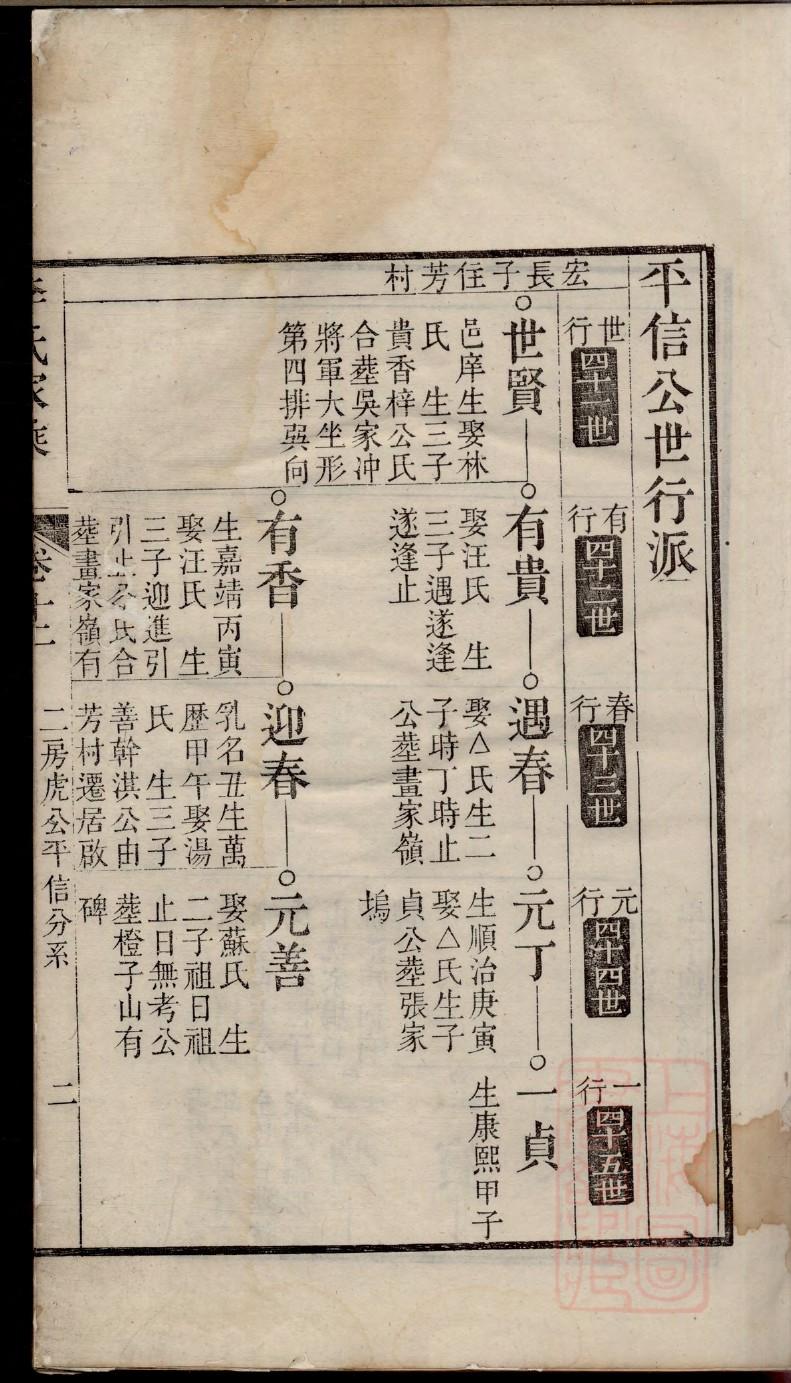 平信公世行派
世行 四十一世
有行 四十二世
春行 四十三世
元行 四十四世
一行 四十五世
宏長子住芳村
世賢
邑庠生娶林
氏 生三子
貴香梓公氏
合塟吳家冲
將軍大坐形
第四排巽向
有貴
娶汪氏 生
三子遇遂逢
遂逢止
遇春
娶△氏生二
子時丁時止
公塟畫家嶺
元丁
生順治庚寅
娶△氏生子
貞公塟張家
塢
一貞
生康熙甲子
有香
生嘉靖丙寅
娶汪氏 生
三子迎進引
引止公氏合
塟畫家嶺有
碑
迎春
乳名丑生萬
歷甲午娶湯
氏 生三子
善幹淇公由
芳村遷居啟
元善
娶蘇氏 生
二子祖日祖
止日無考公
塟橙子山有
碑
李氏家乘
卷十二
二房虎公平信分系
二